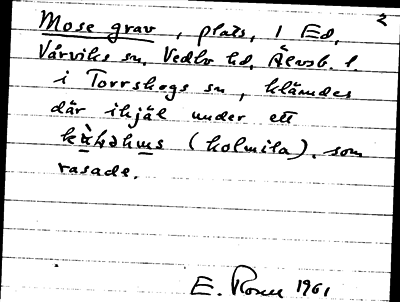 2
Mose grav, plats, 1 Ed,
Vårviks sn, Vedbo hd, Älvsb. l.
i Torrskogs sn, klämdes
där ihjäl under ett
(kolmila), som
rasade.
E. Rosen 1961